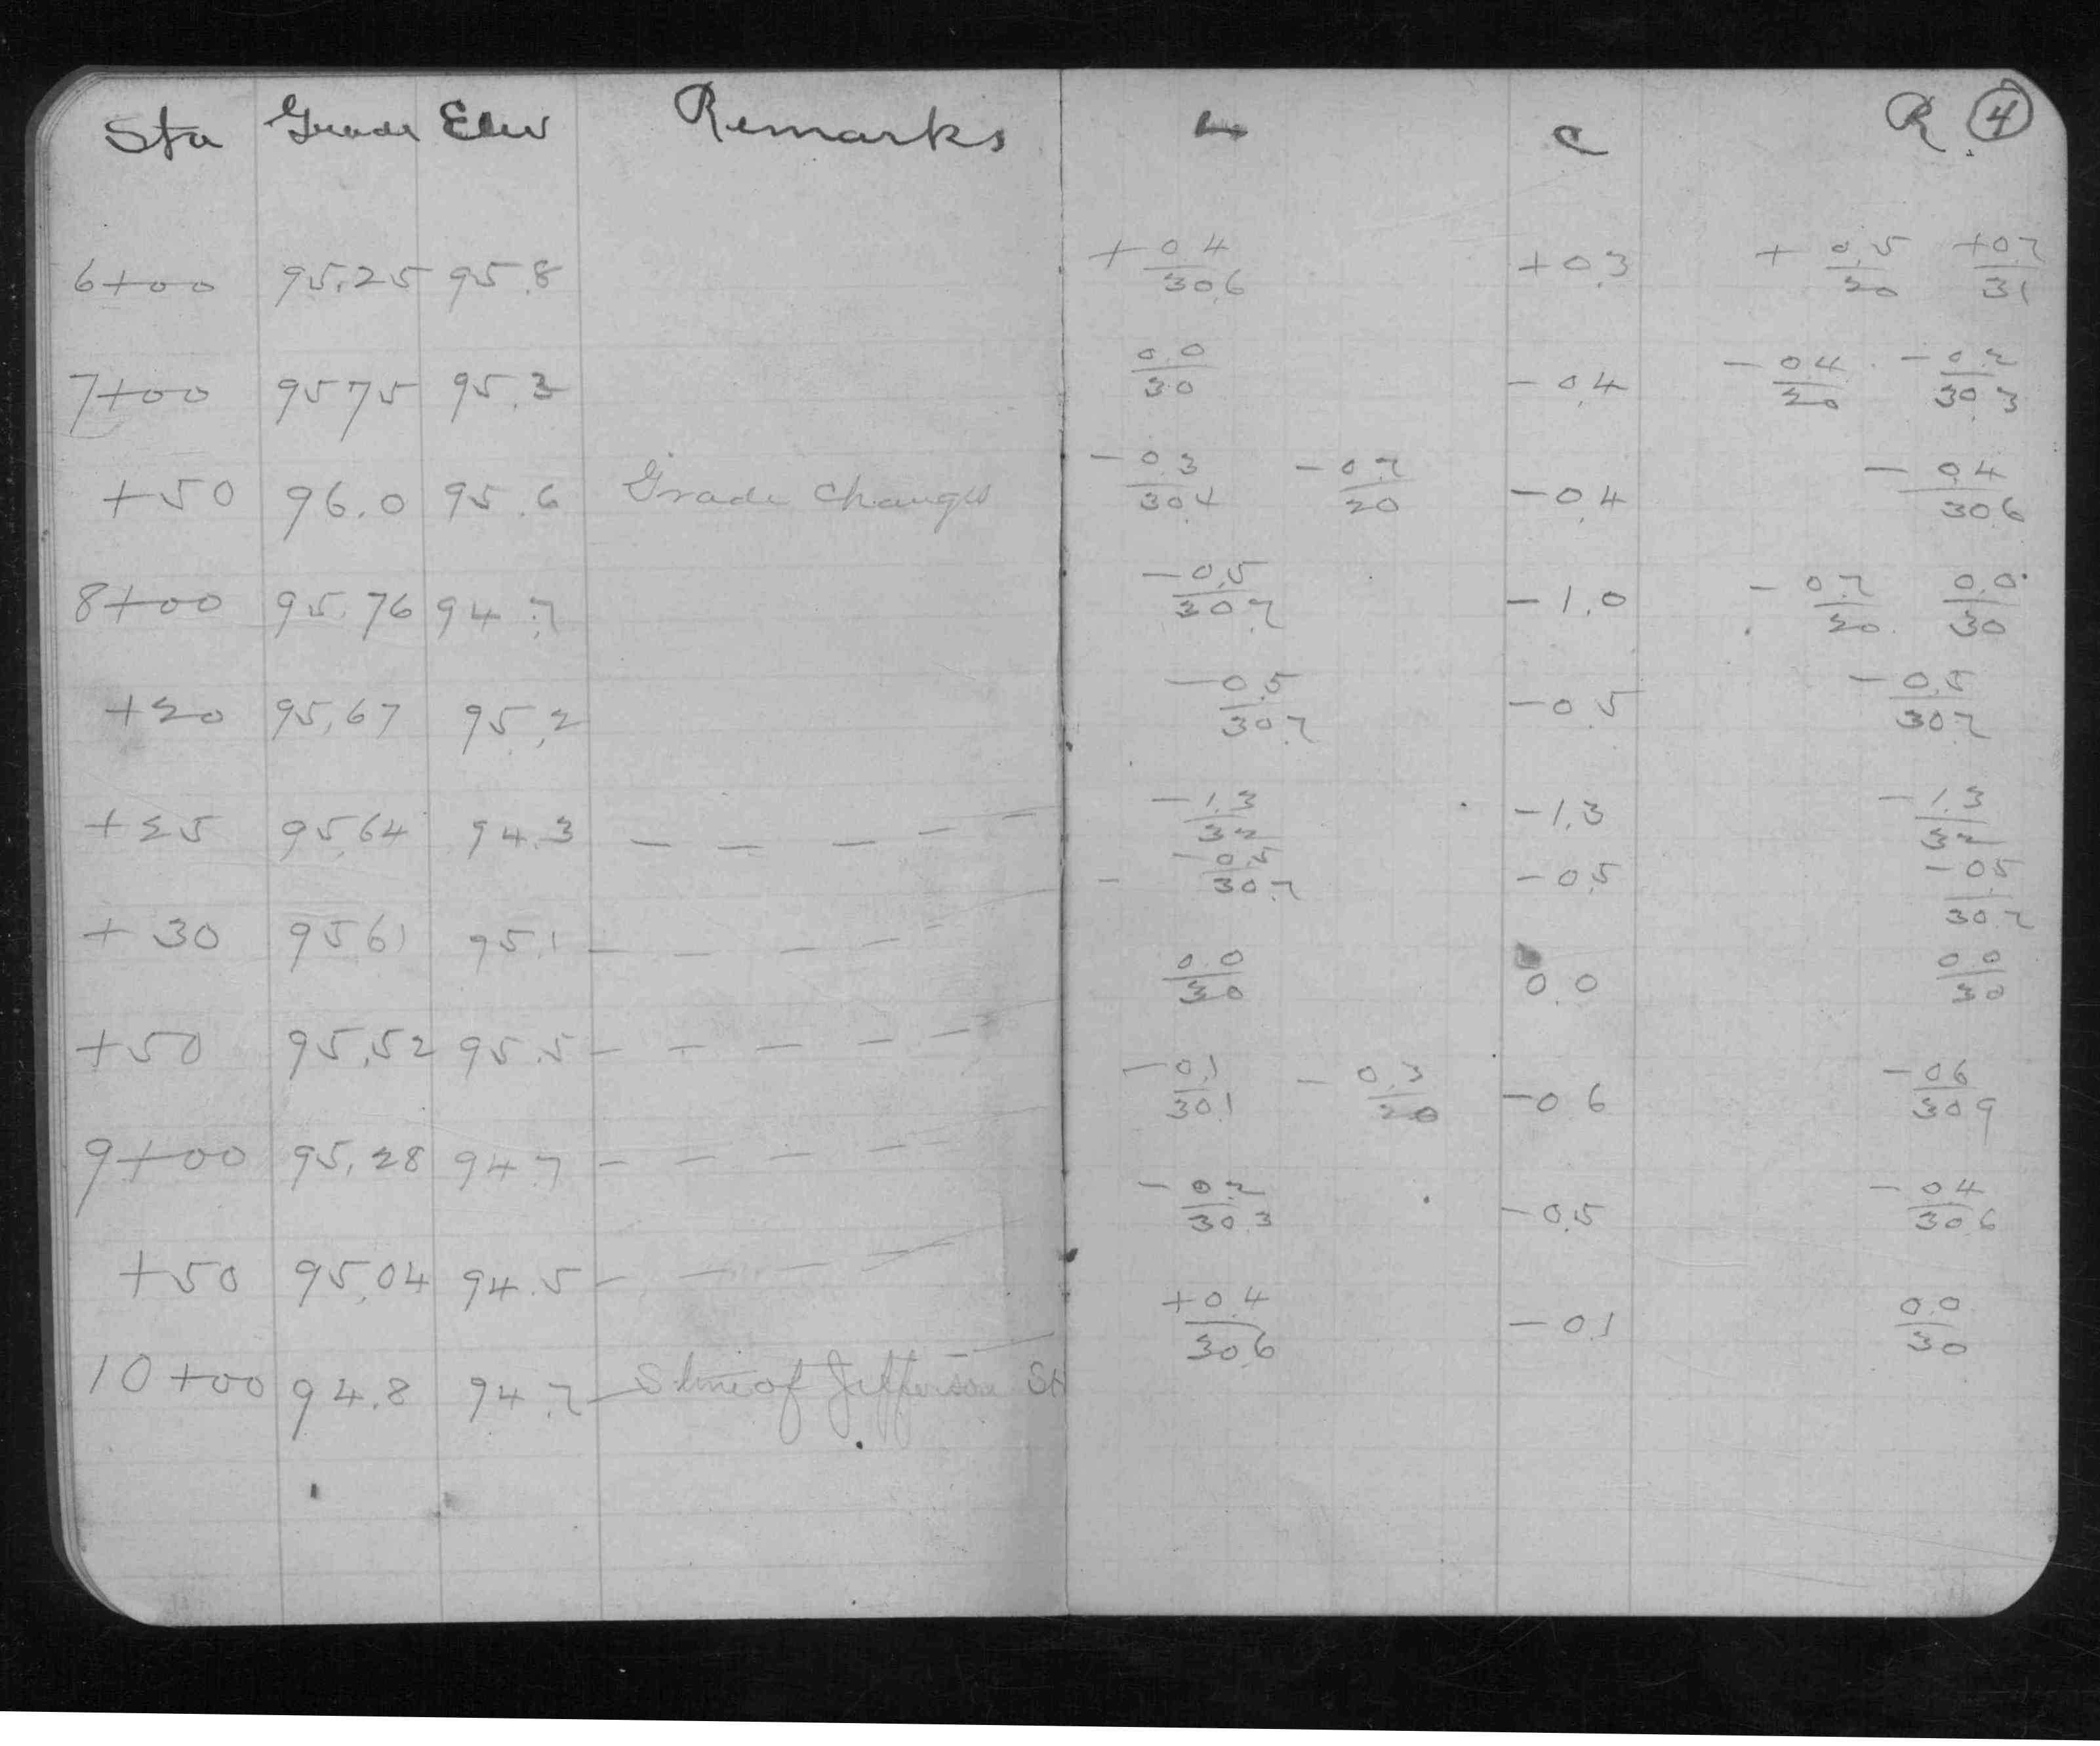 Sta Grade Elev Remarks L C R. 4
6+00 95.25 95.8 +0.4/30.6 +0.3 +0.5/20 +0.2/31
7+00 95 75 95.3 0.0/30 -0.4 -0.4/20 -0.2/30.3
+50 96.0 95.6 Grade Changes -0.3/30.4 -0.7/20 -0.4 -0.4/30.6
8+00 95.76 94.7 -0.5/30.7 -1.0 -0.7/20 0.0/30
+20 95.67 95.2 -0.5/30.7 -0.5 -0.5/30.7
+25 95.64 94.3 - - - - - -1.3/32 -1.3 -1.3/32
+30 95 61 95.1 - - - - - -0.5/30.7 -0.5 -0.5/30.7
+50 95.52 95.5 - - - - - 0.0/30 0.0 0.0/30
9+00 95.28 94.7 - - - - - -0.1/30.1 -0.3/20 -0.6 -0.6/30.9
+50 95.04 94.5 - - - - - -0.2/30.3 -0.5 -0.4/30.6
10+00 94.8 94.7 - S line of Jefferson St +0.4/30.6 -0.1 0.0/30